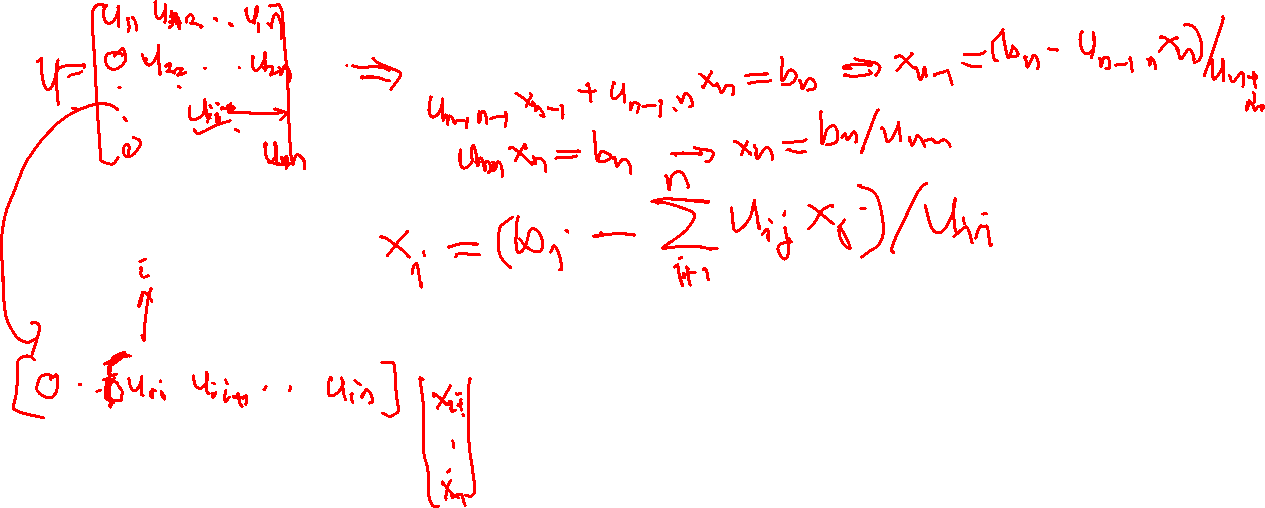 U = [ u₁₁ u₁₂ .. u₁ₙ
0 u₂₂ . . u₂ₙ
. . uᵢᵢ →
0 uₙₙ ]
⇒ uₙ₋₁ₙ₋₁ xₙ₋₁ + uₙ₋₁,ₙ xₙ = bₙ ⇒ xₙ₋₁ = (bₙ - uₙ₋₁ₙ xₙ)/uₙ₋₁
uₙₙ xₙ = bₙ → xₙ = bₙ/uₙₙ
xᵢ = (bᵢ - ∑ⁿᵢ₊₁ uᵢⱼ xⱼ)/uᵢᵢ
i
[ 0 . . uᵢᵢ uᵢᵢ₊₁ . . uᵢₙ ] [ xᵢ
.
xₙ ]